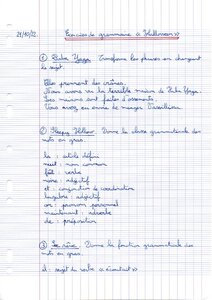 21/10/22
Exercices de grammaire « Halloween »
① Baba Yaga. Transforme les phrases en changeant
le sujet.
Elles prennent des crânes.
Nous avons vu la terrible maison de Baba Yaga.
Ses maisons sont faites d'ossements.
Vous avez eu envie de manger
② Sleepy Hollow. Donne la classe grammaticale des
mots en gras.
la : article défini
nuit : nom commun
: verbe
noire : adjectif
et : conjonction de coordination
: adjectif
: pronom personnel
maintenant : adverbe
de : préposition
③ Donne la fonction grammaticale des
mots en gras.
il : sujet du verbe « écoutait »